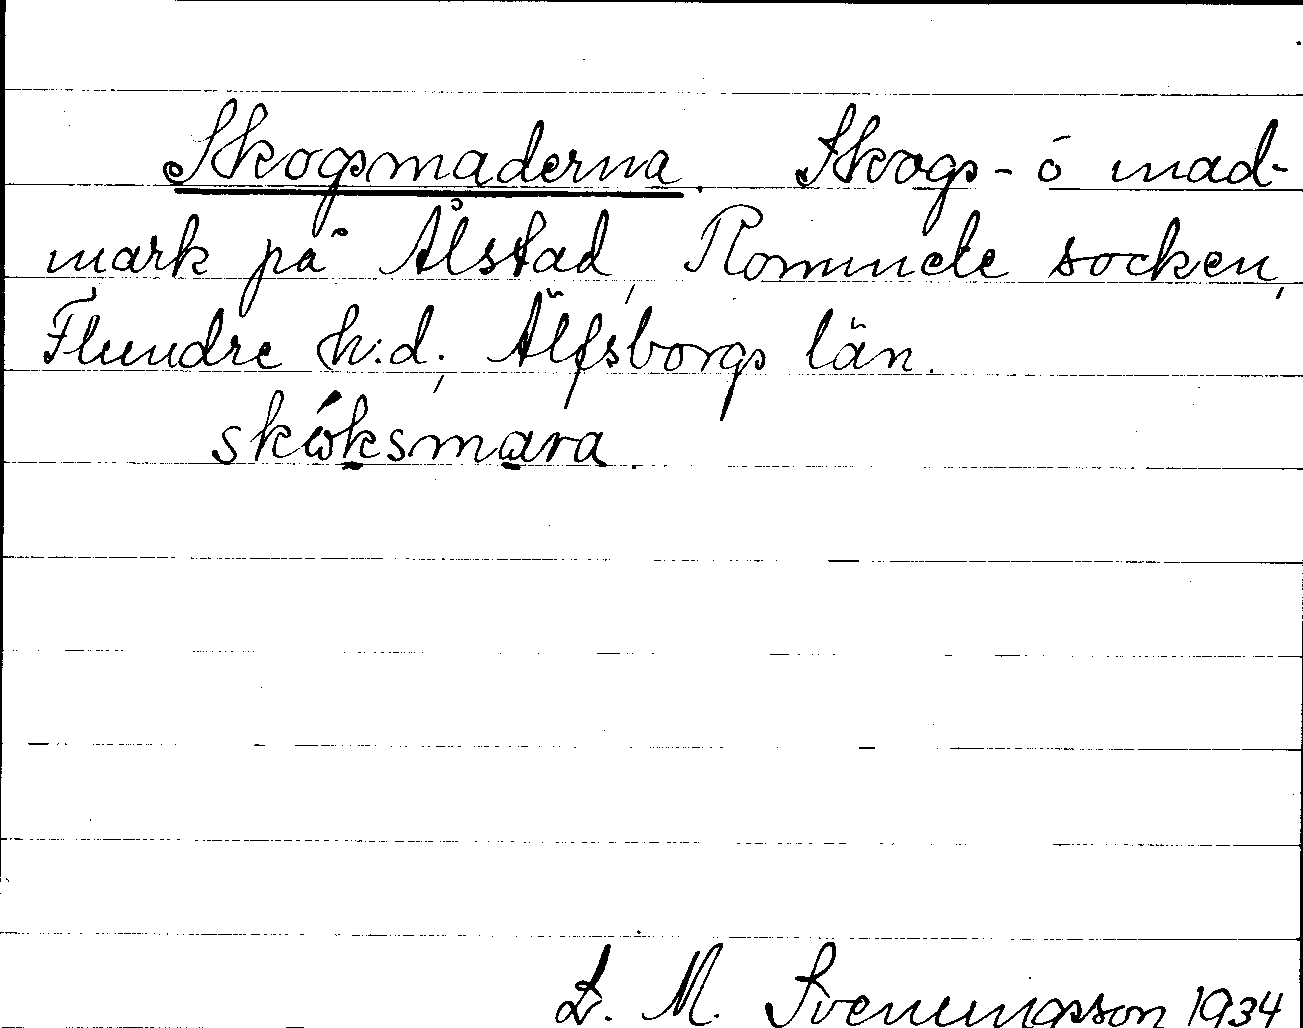 Skogsmaderna. Skogs- o mad-
mark på Ålstad, Rommele socken,
Flundre h:d, Älfsborgs län.
skóksmara.
L. M. Svenungsson 1934